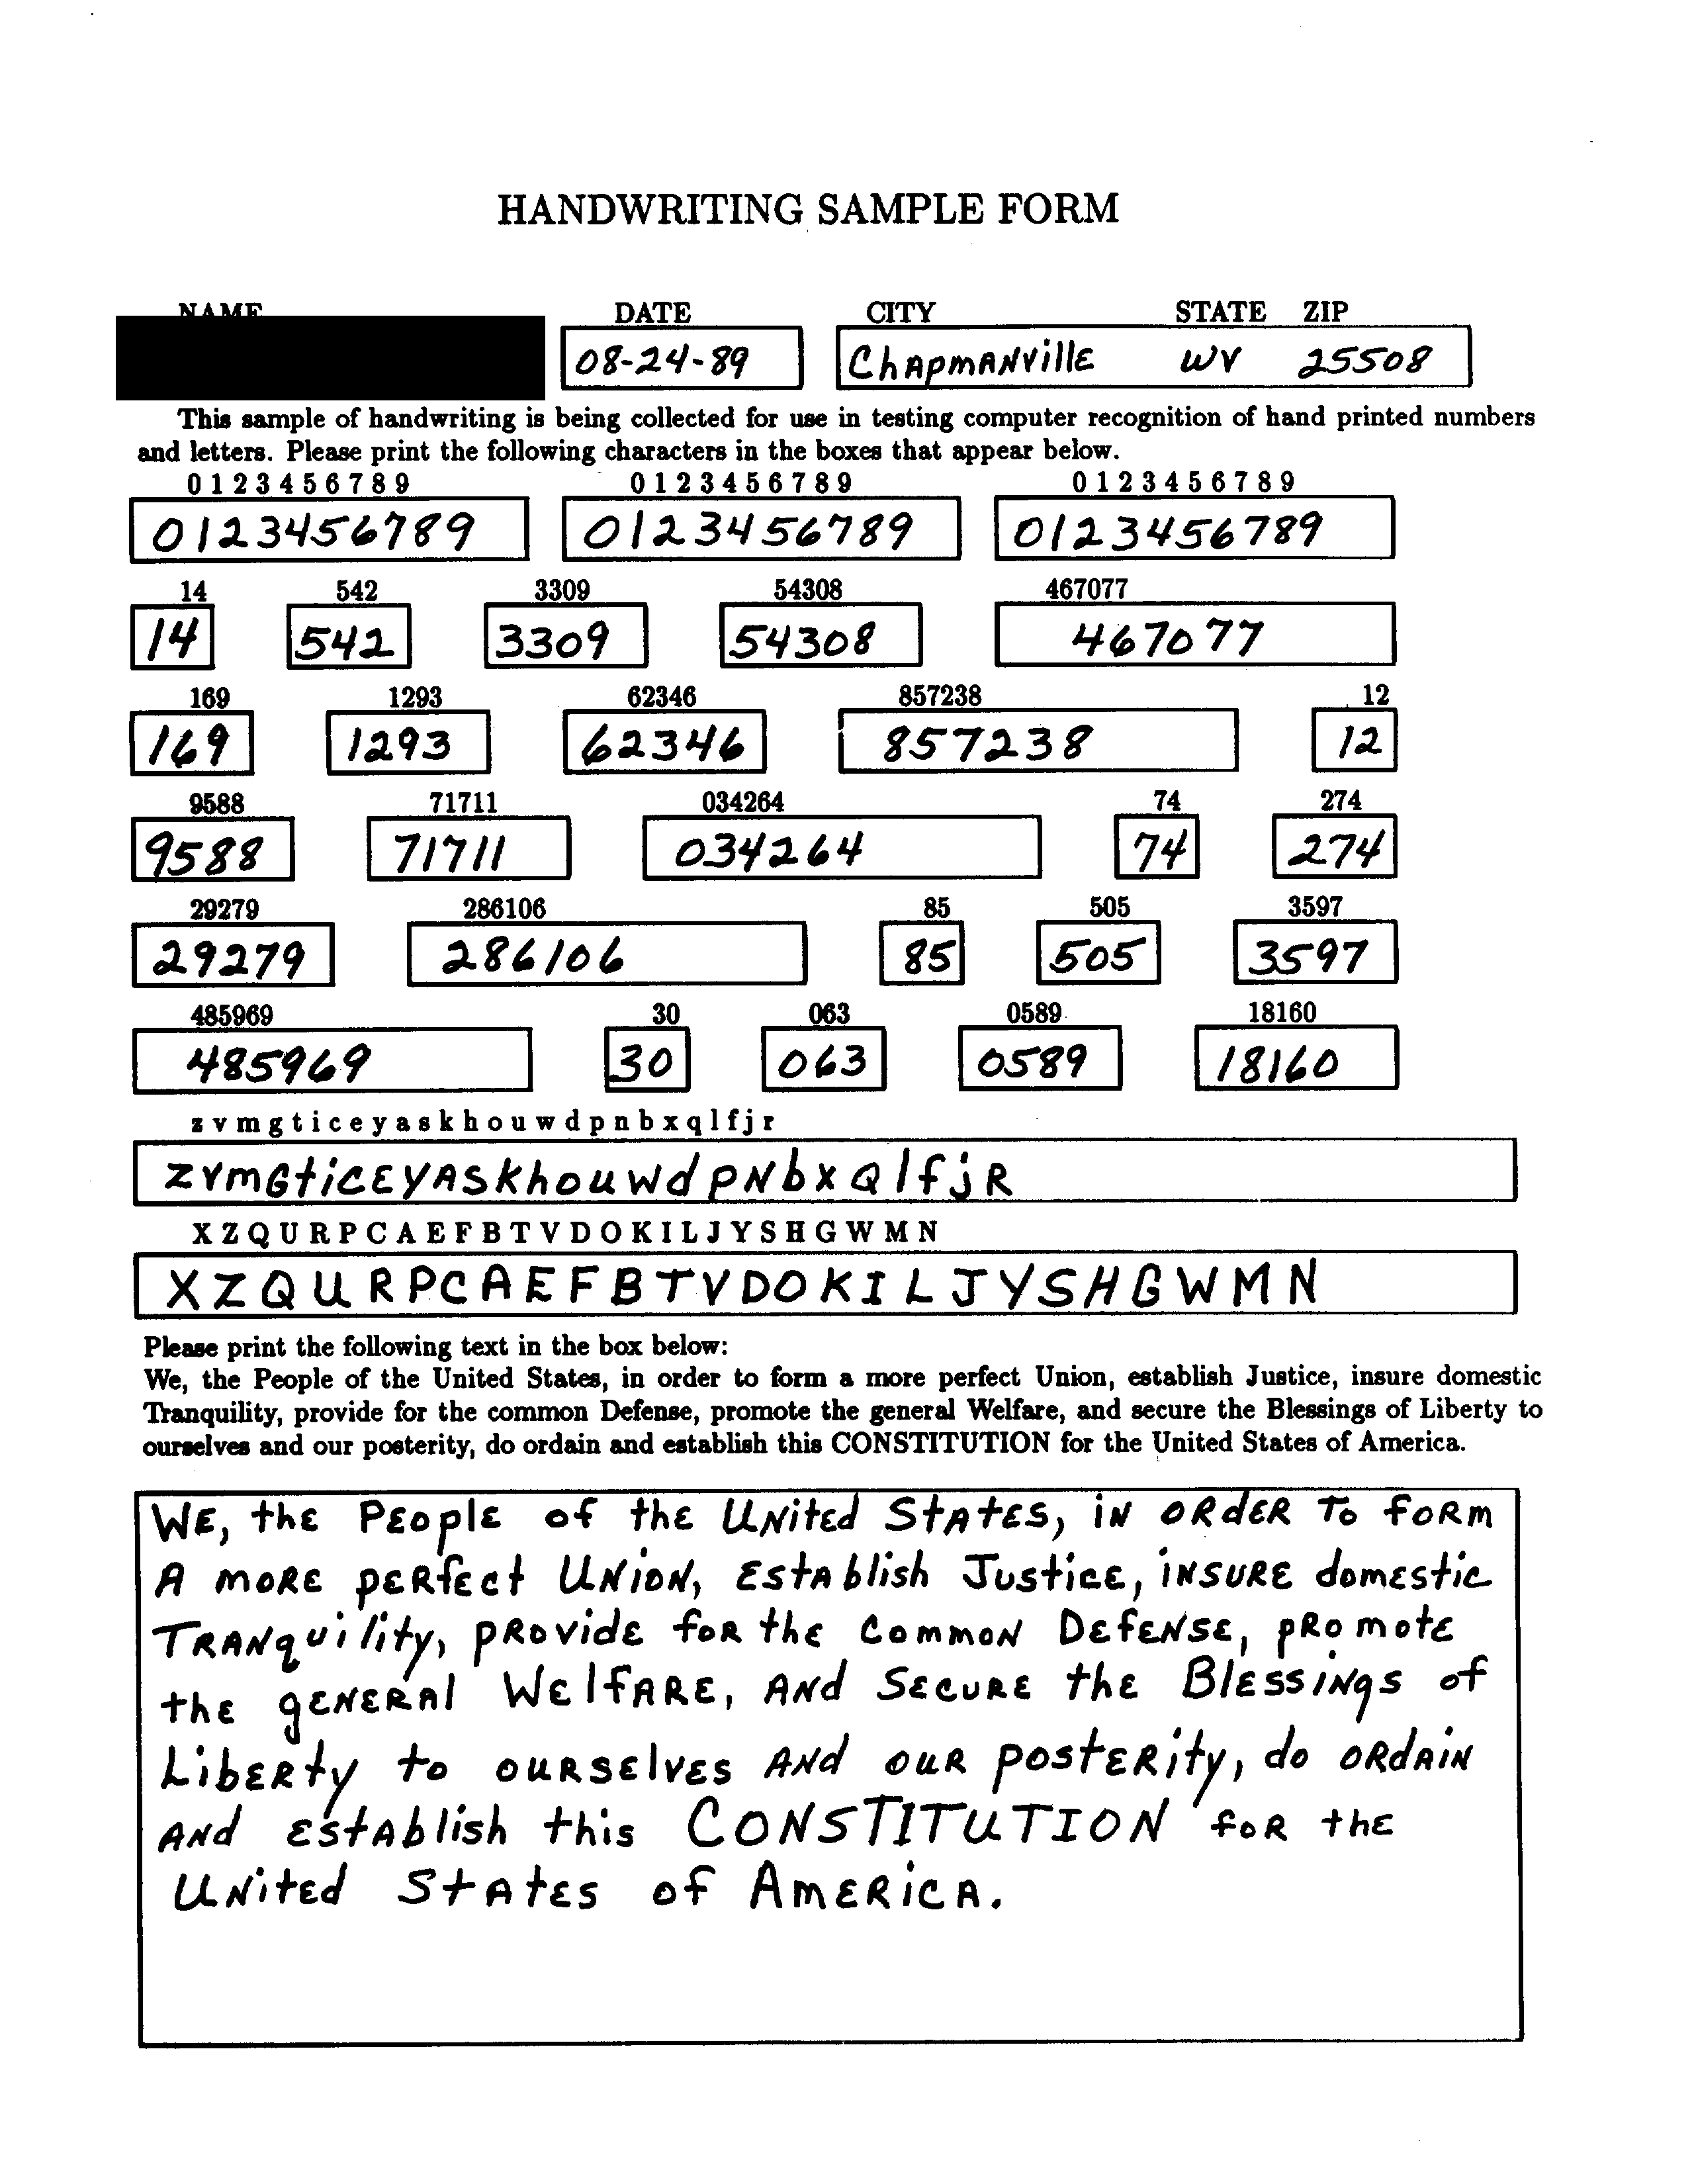 HANDWRITING SAMPLE FORM
NAME DATE CITY STATE ZIP
08-24-89 ChApmANVillE WV 25508
This sample of handwriting is being collected for use in testing computer recognition of hand printed numbers
and letters. Please print the following characters in the boxes that appear below.
0 1 2 3 4 5 6 7 8 9 0 1 2 3 4 5 6 7 8 9 0 1 2 3 4 5 6 7 8 9
0123456789 0123456789 0123456789
14 542 3309 54308 467077
14 542 3309 54308 467077
169 1293 62346 857238 12
169 1293 62346 857238 12
9588 71711 034264 74 274
9588 71711 034264 74 274
29279 286106 85 505 3597
29279 286106 85 505 3597
485969 30 063 0589 18160
485969 30 063 0589 18160
z v m g t i c e y a s k h o u w d p n b x q l f j r
zvmGticEyASkhouWdpNbxQlfjR
X Z Q U R P C A E F B T V D O K I L J Y S H G W M N
XZQURPCAEFBTVDOKILJYSHGWMN
Please print the following text in the box below:
We, the People of the United States, in order to form a more perfect Union, establish Justice, insure domestic
Tranquility, provide for the common Defense, promote the general Welfare, and secure the Blessings of Liberty to
ourselves and our posterity, do ordain and establish this CONSTITUTION for the United States of America.
WE, thE PEoplE of thE UNitEd StAtES, iN ORdER To foRm
A moRE pERfEct UNiON, EStAblish JusticE, iNSURE domEstic
TRANquility, pRovidE foR thE CommoN DEfENSE, pRomotE
thE gENERAl WElfARE, ANd SECURE thE BlESSiNgS of
LibERty to ouRSElvES ANd ouR postERity, do ORdAiN
ANd EstAblish this CONSTITUTION foR thE
UNitEd StAtES of AmERiCA.